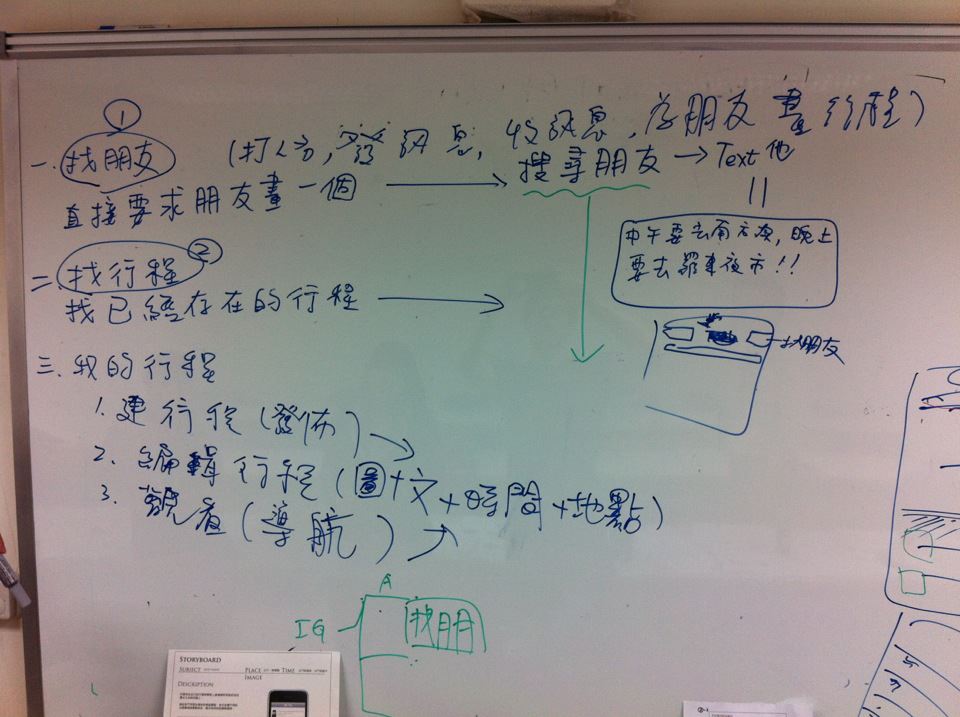 ①
一. 找朋友 (打分, 發訊息, 收訊息, 為朋友畫行程)
直接要求朋友畫一個 → 搜尋朋友 → Text 他
中午要去南方澳, 晚上
要去羅東夜市!!
找朋友
②
二. 找行程
找已經存在的行程
三. 我的行程
1. 建行程 (發佈)
2. 編輯行程 (圖+文+時間+地點)
3. 觀看 (導航)
A
IG
找朋
STORYBOARD
SUBJECT PLACE TIME
IMAGE
DESCRIPTION